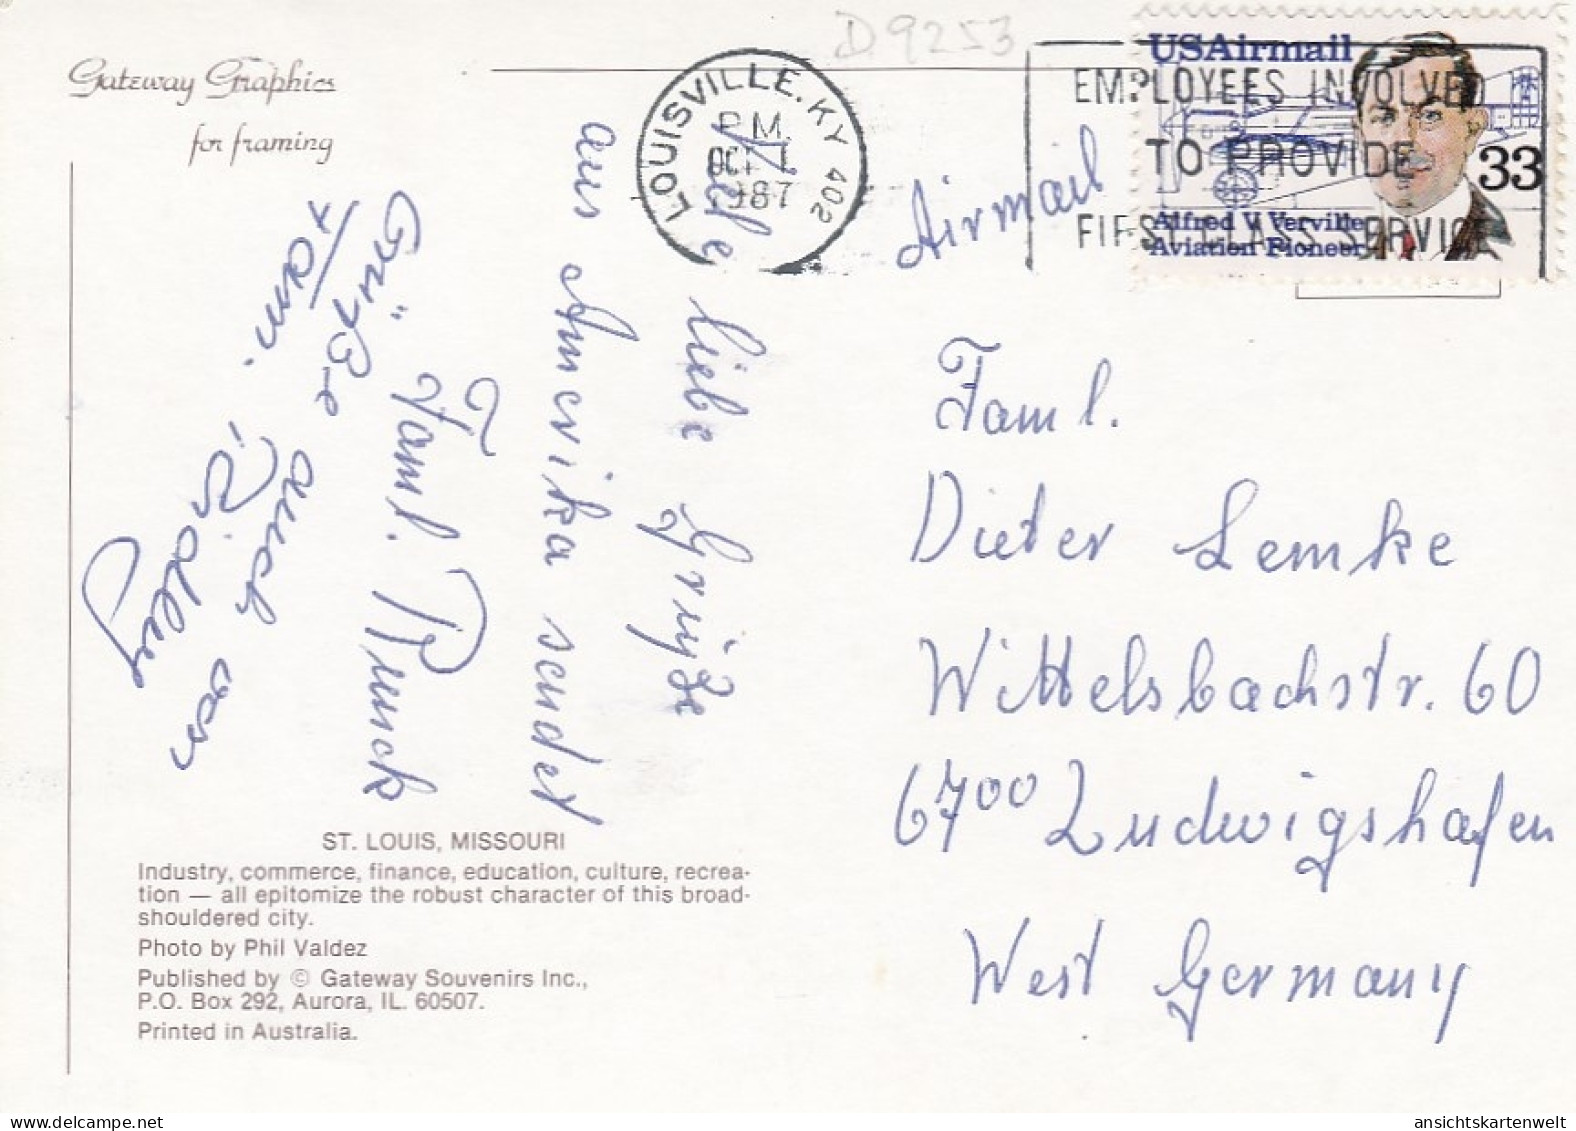 D 9253
Gateway Graphics
for framing
LOUISVILLE. KY 402
P.M.
OCT 1
1987
USAirmail
EMPLOYEES INVOLVED
TO PROVIDE
FIRST CLASS SERVICE
33
Alfred V. Verville
Aviation Pioneer
Airmail
Viele liebe Grüße
aus Amerika sendet
Faml. Runck
Grüße auch von
x am. Bradley
Faml.
Dieter Lemke
Wittelsbachstr. 60
6700 Ludwigshafen
West Germany
ST. LOUIS, MISSOURI
Industry, commerce, finance, education, culture, recrea-
tion — all epitomize the robust character of this broad-
shouldered city.
Photo by Phil Valdez
Published by © Gateway Souvenirs Inc.,
P.O. Box 292, Aurora, IL. 60507.
Printed in Australia.
ansichtskartenwelt
delcampe.net